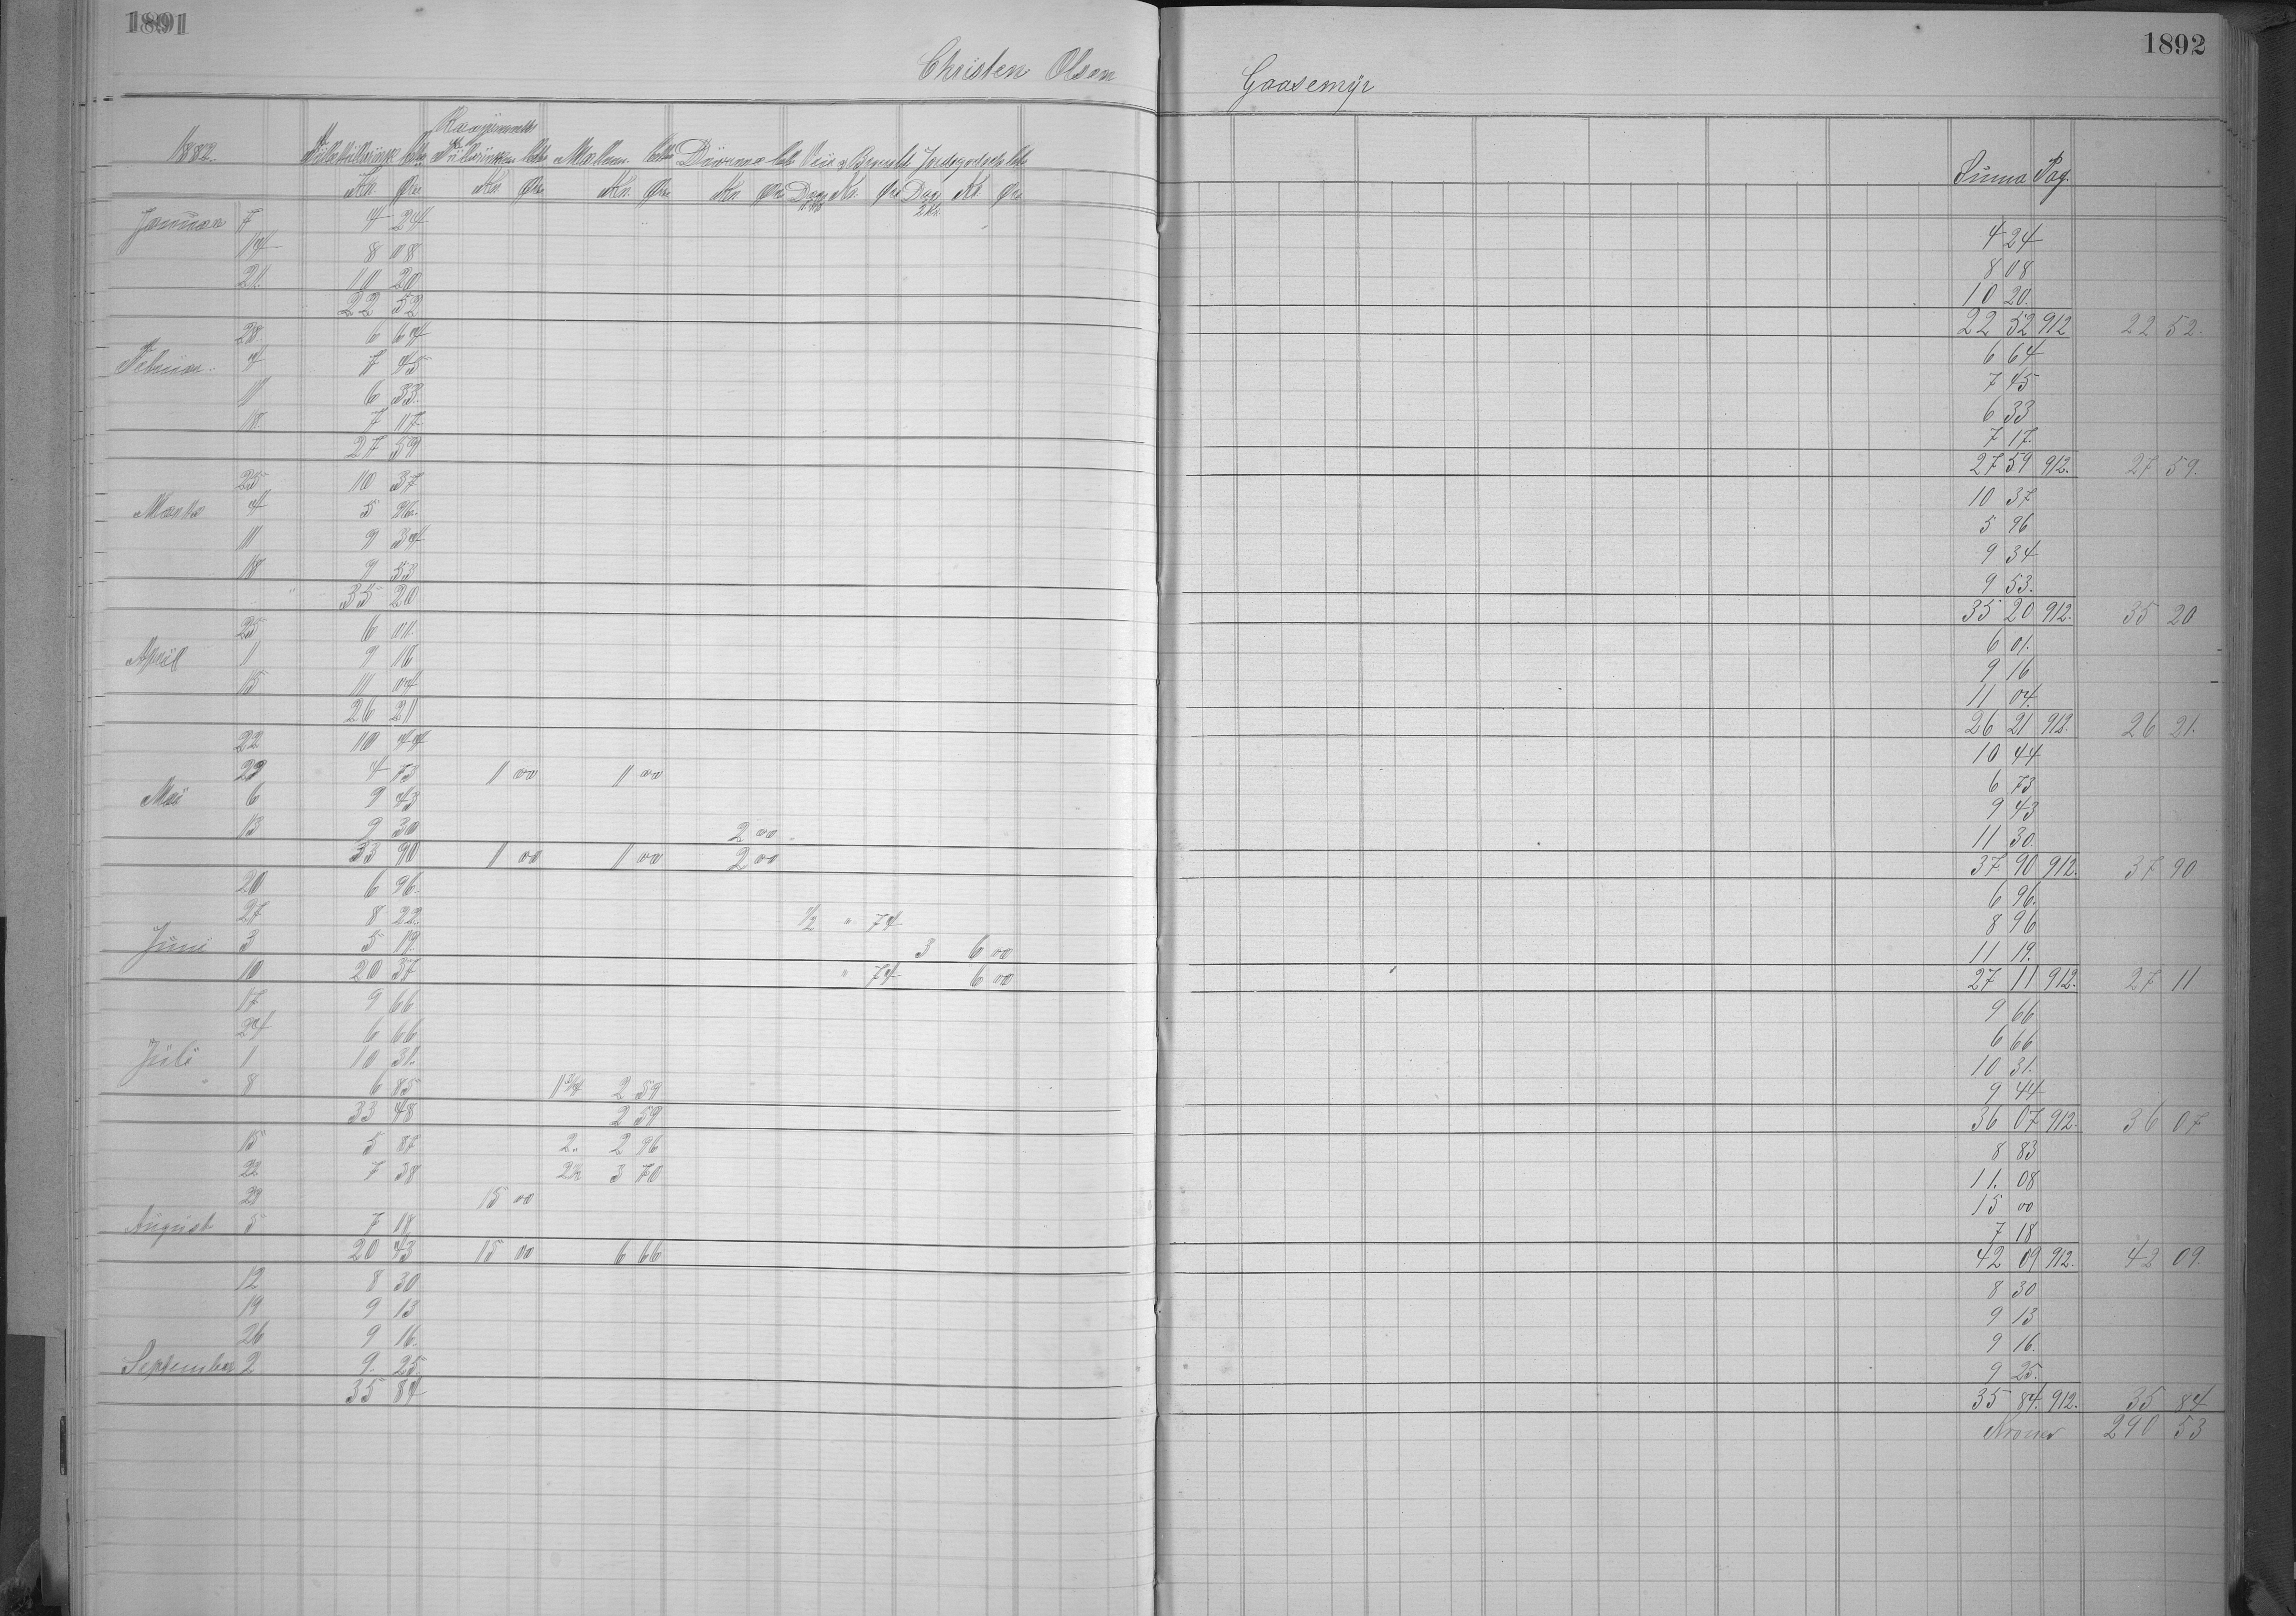 1891
1892
Christen Olsen Gaasemyr
1882.
Malm Conto
Summa Pag.
Kr. Øre Kr. Øre Kr. Øre Kr. Øre Dage Kr. Øre Dage Kr. Øre
2 Kr.
Januar 7 4 24 4 24
14 8 08 8 08
21. 10 20 10 20.
22 52 22 52 912 22 52.
28 6 64 6 64
Februar 4 7 45 7 45
11 6 33. 6 33
18 7 17. 7 17.
27 59 27 59 912. 27 59.
25 10 37 10 37
Marts 4 5 96. 5 96
11 9 34 9 34
18 9 53 9 53.
35 20 35 20 912. 35 20
25 6 01. 6 01.
April 1 9 16 9 16
15 11 04 11 04.
26 21 26 21 912. 26 21.
22 10 44 10 44
29 4 73 1 00 1 00 6 73
Mai 6 9 43 9 43
13 9 30 2 00 11 30.
33 90 1 00 1 00 2 00 37 90 912. 37 90
20 6 96. 6 96.
27 8 22 1/2 " 74 8 96
Juni 3 5 19. 3 6 00 11 19.
10 20 37 " 74 6 00 27 11 912. 27 11
17 9 66 9 66
24 6 66 6 66
Juli 1 10 31. 10 31.
" 8 6 85 1 3/4 2 59 9 44
33 48 2 59 36 07 912. 36 07
15 5 87 2 " 2 96 8 83
22 7 38 2 1/2 3 70 11. 08
29 15 00 15 00
August 5 7 18 7 18
20 43 15 00 6 66 42 09 912. 42 09.
12 8 30 8 30
19 9 13 9 13
26 9 16. 9 16.
September 2 9. 25 9 25.
35 84 35 84. 912. 35 84
Kroner 290 53